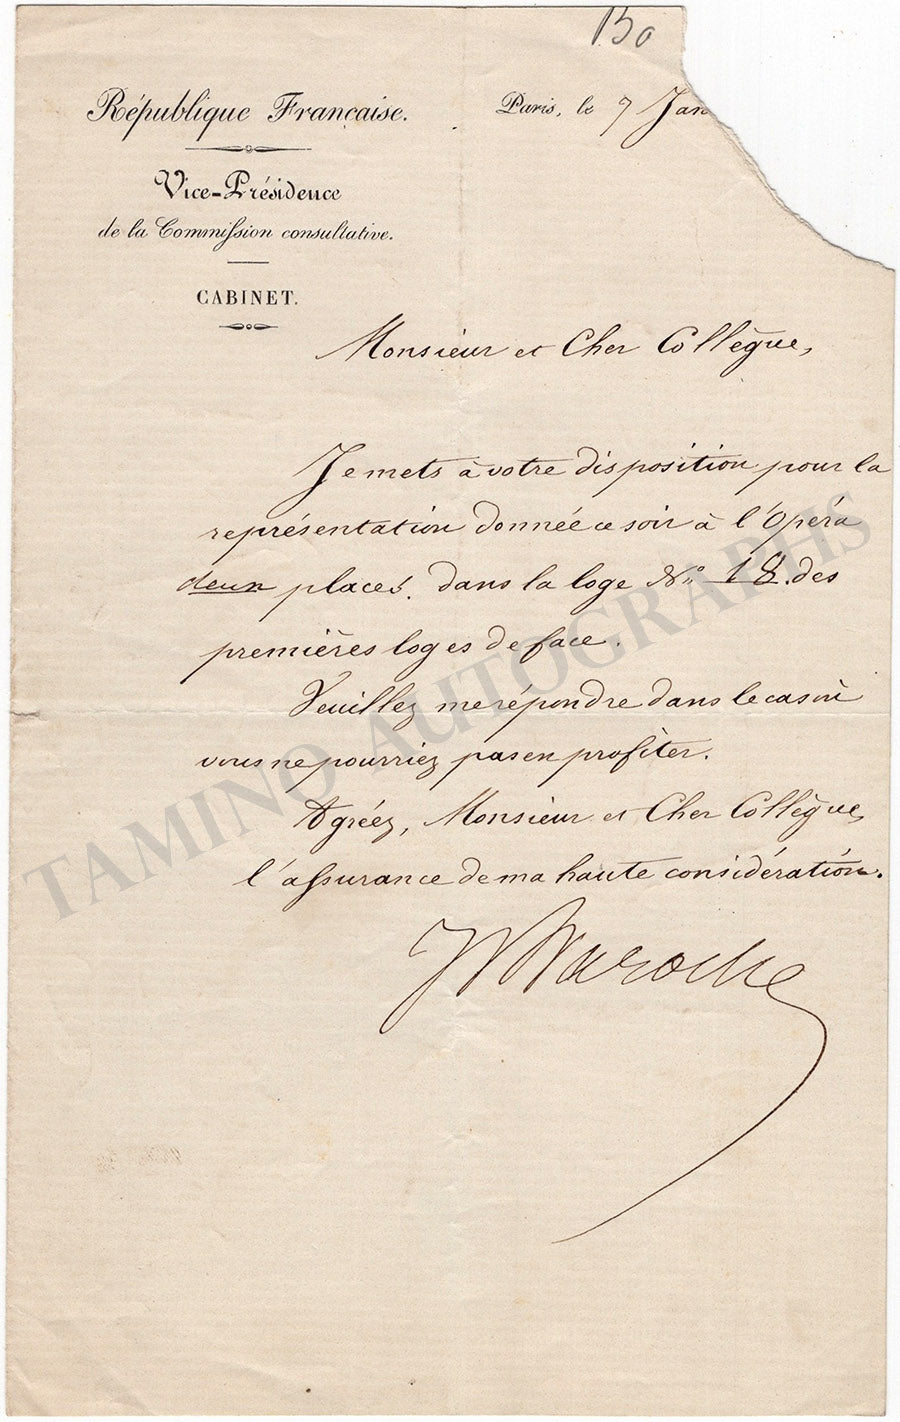 130
République Française.
Paris, le 7 Jan
Vice-Présidence
de la Commission consultative.
CABINET.
Monsieur et Cher Collègue,
Je mets à votre disposition pour la
représentation donnée ce soir à l'Opéra
deux places. dans la loge No. 18. des
premières loges de face.
Veuillez me répondre dans le cas où
vous ne pourriez pas en profiter.
Agréez, Monsieur et Cher Collègue,
l'assurance de ma haute considération.
Baroche
TAMINO AUTOGRAPHS